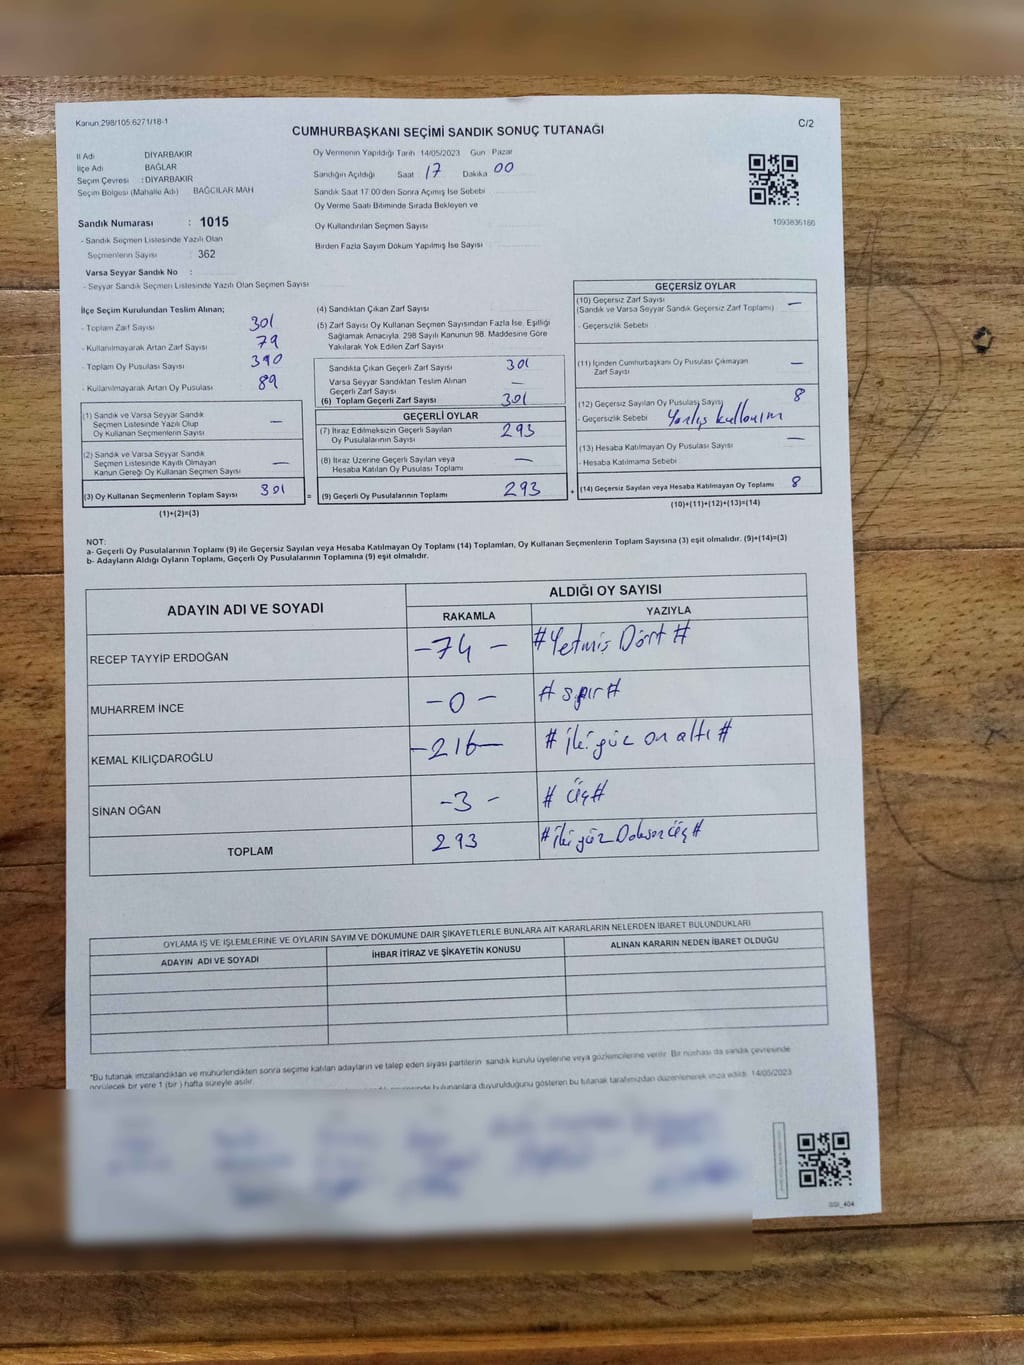 Kanun 298/105.6271/18-1
CUMHURBAŞKANI SEÇİMİ SANDIK SONUÇ TUTANAĞI
C/2
İl Adı DİYARBAKIR
İlçe Adı BAĞLAR
Seçim Çevresi : DİYARBAKIR
Seçim Bölgesi (Mahalle Adı) BAĞCILAR MAH
Oy Vermenin Yapıldığı Tarih 14/05/2023 Gün Pazar
Sandığın Açıldığı Saat 17 Dakika 00
Sandık Saat 17.00'den Sonra Açımış İse Sebebi
Oy Verme Saati Bitiminde Sırada Bekleyen ve
Oy Kullandırılan Seçmen Sayısı
Birden Fazla Sayım Döküm Yapılmış İse Sayısı
1093836166
Sandık Numarası : 1015
- Sandık Seçmen Listesinde Yazılı Olan
Seçmenlerin Sayısı : 362
Varsa Seyyar Sandık No :
- Seyyar Sandık Seçmen Listesinde Yazılı Olan Seçmen Sayısı
İlçe Seçim Kurulundan Teslim Alınan;
- Toplam Zarf Sayısı 301
- Kullanılmayarak Artan Zarf Sayısı 79
- Toplam Oy Pusulası Sayısı 390
- Kullanılmayarak Artan Oy Pusulası 89
(1) Sandık ve Varsa Seyyar Sandık
Seçmen Listesinde Yazılı Olup
Oy Kullanan Seçmenlerin Sayısı —
(2) Sandık ve Varsa Seyyar Sandık
Seçmen Listesinde Kayıtlı Olmayan
Kanun Gereği Oy Kullanan Seçmen Sayısı —
(3) Oy Kullanan Seçmenlerin Toplam Sayısı 301 =
(1)+(2)=(3)
(4) Sandıktan Çıkan Zarf Sayısı
(5) Zarf Sayısı Oy Kullanan Seçmen Sayısından Fazla İse, Eşitliği
Sağlamak Amacıyla, 298 Sayılı Kanunun 98. Maddesine Göre
Yakılarak Yok Edilen Zarf Sayısı
Sandıkta Çıkan Geçerli Zarf Sayısı 301
Varsa Seyyar Sandıktan Teslim Alınan
Geçerli Zarf Sayısı —
(6) Toplam Geçerli Zarf Sayısı 301
GEÇERLİ OYLAR
(7) İtiraz Edilmeksizin Geçerli Sayılan
Oy Pusulalarının Sayısı 293
(8) İtiraz Üzerine Geçerli Sayılan veya
Hesaba Katılan Oy Pusulası Toplamı —
(9) Geçerli Oy Pusulalarının Toplamı 293 +
GEÇERSİZ OYLAR
(10) Geçersiz Zarf Sayısı —
(Sandık ve Varsa Seyyar Sandık Geçersiz Zarf Toplamı)
- Geçersizlik Sebebi
(11) İçinden Cumhurbaşkanı Oy Pusulası Çıkmayan
Zarf Sayısı —
(12) Geçersiz Sayılan Oy Pusulası Sayısı 8
- Geçersizlik Sebebi Yanlış kullanım
(13) Hesaba Katılmayan Oy Pusulası Sayısı —
- Hesaba Katılmama Sebebi
(14) Geçersiz Sayılan veya Hesaba Katılmayan Oy Toplamı 8
(10)+(11)+(12)+(13)=(14)
NOT:
a- Geçerli Oy Pusulalarının Toplamı (9) ile Geçersiz Sayılan veya Hesaba Katılmayan Oy Toplamı (14) Toplamları, Oy Kullanan Seçmenlerin Toplam Sayısına (3) eşit olmalıdır. (9)+(14)=(3)
b- Adayların Aldığı Oyların Toplamı, Geçerli Oy Pusulalarının Toplamına (9) eşit olmalıdır.
ADAYIN ADI VE SOYADI
ALDIĞI OY SAYISI
RAKAMLA YAZIYLA
RECEP TAYYİP ERDOĞAN -74 - #Yetmiş Dört #
MUHARREM İNCE -0- # sıfır#
KEMAL KILIÇDAROĞLU -216- # iki yüz on altı #
SİNAN OĞAN -3 - # Üç#
TOPLAM 293 # iki yüz Doksan Üç#
OYLAMA İŞ VE İŞLEMLERİNE VE OYLARIN SAYIM VE DÖKÜMÜNE DAİR ŞİKAYETLERLE BUNLARA AİT KARARLARIN NELERDEN İBARET BULUNDUKLARI
ADAYIN ADI VE SOYADI İHBAR İTİRAZ VE ŞİKAYETİN KONUSU ALINAN KARARIN NEDEN İBARET OLDUĞU
*Bu tutanak imzalandıktan ve mühürlendikten sonra seçime katılan adayların ve talep eden siyasi partilerin sandık kurulu üyelerine veya gözlemcilerine verilir. Bir nüshası da sandık çevresinde
görülecek bir yere 1 (bir) hafta süreyle asılır.
bulunanlara duyurulduğunu gösteren bu tutanak tarafımızdan düzenlenerek imza edildi. 14/05/2023